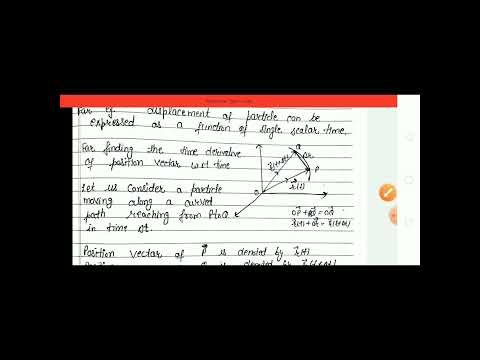 For eg. displacement of particle can be
expressed as a function of single scalar time.
For finding the time derivative
of position vector w.r.t time
Let us Consider a particle
moving along a curved
path reaching from P to Q
in time δt.
Q
δr
P
r(t+δt)
r(t)
O
OP + PQ = OQ
r(t) + δr = r(t+δt)
Position vector of P is denoted by r(t)
is denoted by r(t+δt)